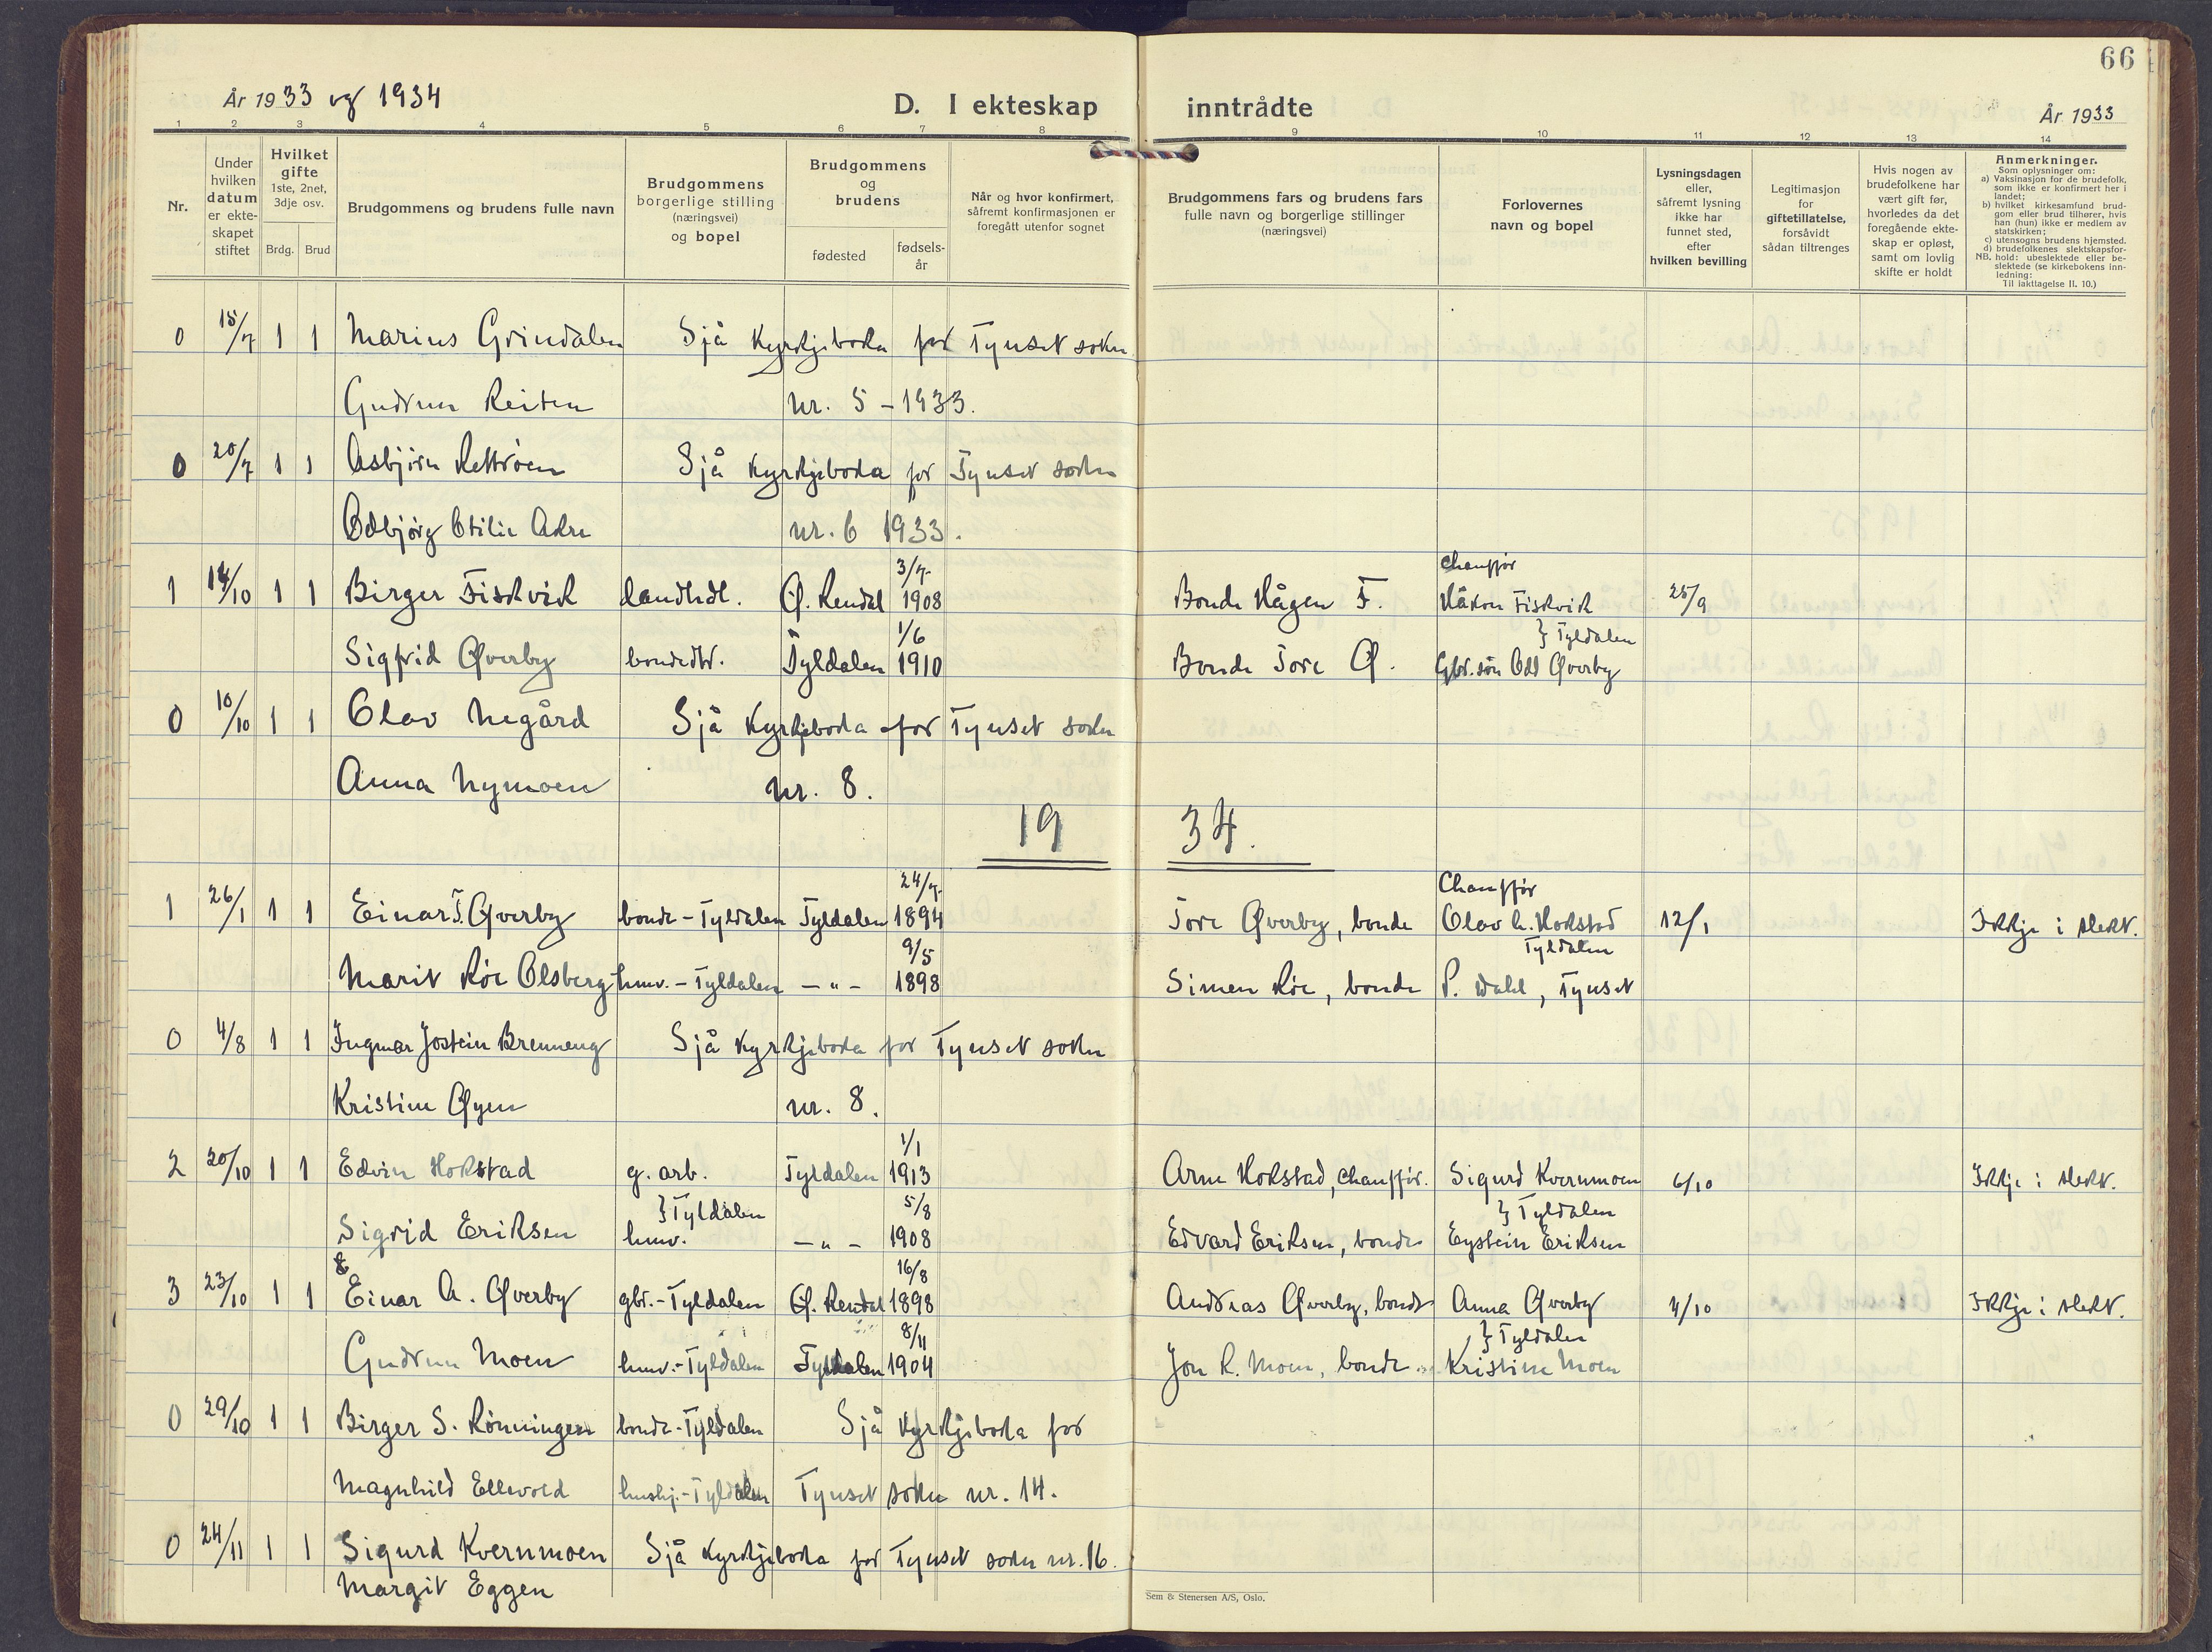 66
År 1933 og 1934
D. I ekteskap inntrådte
År 1933
1 2 3 4 5 6 7 8 9 10 11 12 13 14
Nr.
Under hvilken datum er ekteskapet stiftet
Hvilket gifte 1ste, 2net, 3dje osv.
Brdg. Brud
Brudgommens og brudens fulle navn
Brudgommens borgerlige stilling (næringsvei) og bopel
Brudgommens og brudens
fødested
fødsels-år
Når og hvor konfirmert, såfremt konfirmasjonen er foregått utenfor sognet
Brudgommens fars og brudens fars fulle navn og borgerlige stillinger (næringsvei)
Forlovernes navn og bopel
Lysningsdagen eller, såfremt lysning ikke har funnet sted, efter hvilken bevilling
Legitimasjon for giftetillatelse, forsåvidt sådan tiltrenges
Hvis nogen av brudefolkene har vært gift før, hvorledes da det foregående ekteskap er opløst, samt om lovlig skifte er holdt
Anmerkninger.
Som oplysninger om:
a) Vaksinasjon for de brudefolk, som ikke er konfirmert her i landet;
b) hvilket kirkesamfund brudgom eller brud tilhører, hvis han (hun) ikke er medlem av statskirken;
c) utensogns brudens hjemsted.
d) brudefolkenes slektskapsforhold: ubeslektede eller beslektede (se kirkebokens innledning:
NB. Til iakttagelse II. 10.)
0 15/7 1 1 Marius Grindalen Sjå Kyrkjeboka for Tynset sokn
Gudrun Reiten nr. 5 - 1933.
0 20/7 1 1 Asbjørn Rettrøen Sjå Kyrkjeboka for Tynset sokn
Odbjørg Otilie Akre nr. 6 1933.
3/7 Chauffør
1 14/10 1 1 Birger Fiskvik landhdl. Ø. Rendal 1908 Bonde Hågen F. Håkon Fiskvik 25/9
1/6 } Tyldalen
Sigfrid Øverby bondedtr. Tyldalen 1910 Bonde Tore Ø. Gbr.søn Odd Øverby
0 10/10 1 1 Olav Negård Sjå Kyrkjeboka for Tynset sokn
Anna Nymoen nr. 8.
19 34.
24/7 Chauffør
1 26/1 1 1 Einar T. Øverby bonde - Tyldalen Tyldalen 1894 Tore Øverby, bonde Olav A. Hokstad 12/1 Ikkje i slekt.
9/5 Tyldalen
Marit Røe Olsberg huv. - Tyldalen - " - 1898 Simen Røe, bonde P. Dahl, Tynset
0 4/8 1 1 Ingmar Jostein Brenneng Sjå Kyrkjeboka for Tynset sokn
Kristine Øyen nr. 8.
1/1
2 20/10 1 1 Edvin Hokstad g. arb. Tyldalen 1913 Arne Hokstad, chauffør. Sigurd Kvernmoen 6/10 Ikkje i slekt.
} Tyldalen 5/8 } Tyldalen
Sigrid Eriksen huv. - " - 1908 Edvard Eriksen, bonde Eystein Eriksen
16/8
3 23/10 1 1 Einar A. Øverby gbr. - Tyldalen Ø. Rendal 1898 Andreas Øverby, bonde Anna Øverby 4/10 Ikkje i slekt.
8/11 } Tyldalen
Gudrun Moen huv. - Tyldalen Tyldalen 1904 Jon R. Moen, bonde Kristine Moen
0 29/10 1 1 Birger S. Rønningen bonde - Tyldalen Sjå Kyrkjeboka for
Magnhild Ellevold hushj. - Tyldalen Tynset sokn nr. 14.
0 24/11 1 1 Sigurd Kvernmoen Sjå Kyrkjeboka for Tynset sokn nr. 16.
Margit Eggen
Sem & Stenersen A/S, Oslo.